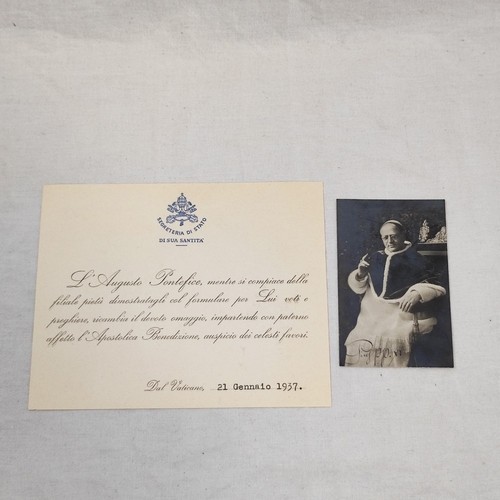 SEGRETERIA DI STATO
DI SUA SANTITA'
L'Augusto Pontefice, mentre si compiace della
filiale pietà dimostratagli col formulare per Lui voti e
preghiere, ricambia il devoto omaggio, impartendo con paterno
affetto l'Apostolica Benedizione, auspicio dei celesti favori.
Dal Vaticano, 21 Gennaio 1937.